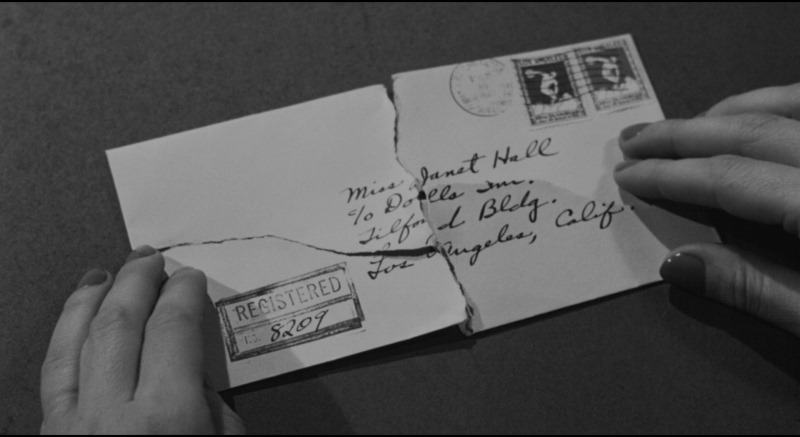 Miss Janet Hall
c/o Dolls Inc.
Tilford Bldg.
Los Angeles, Calif.
REGISTERED
8209